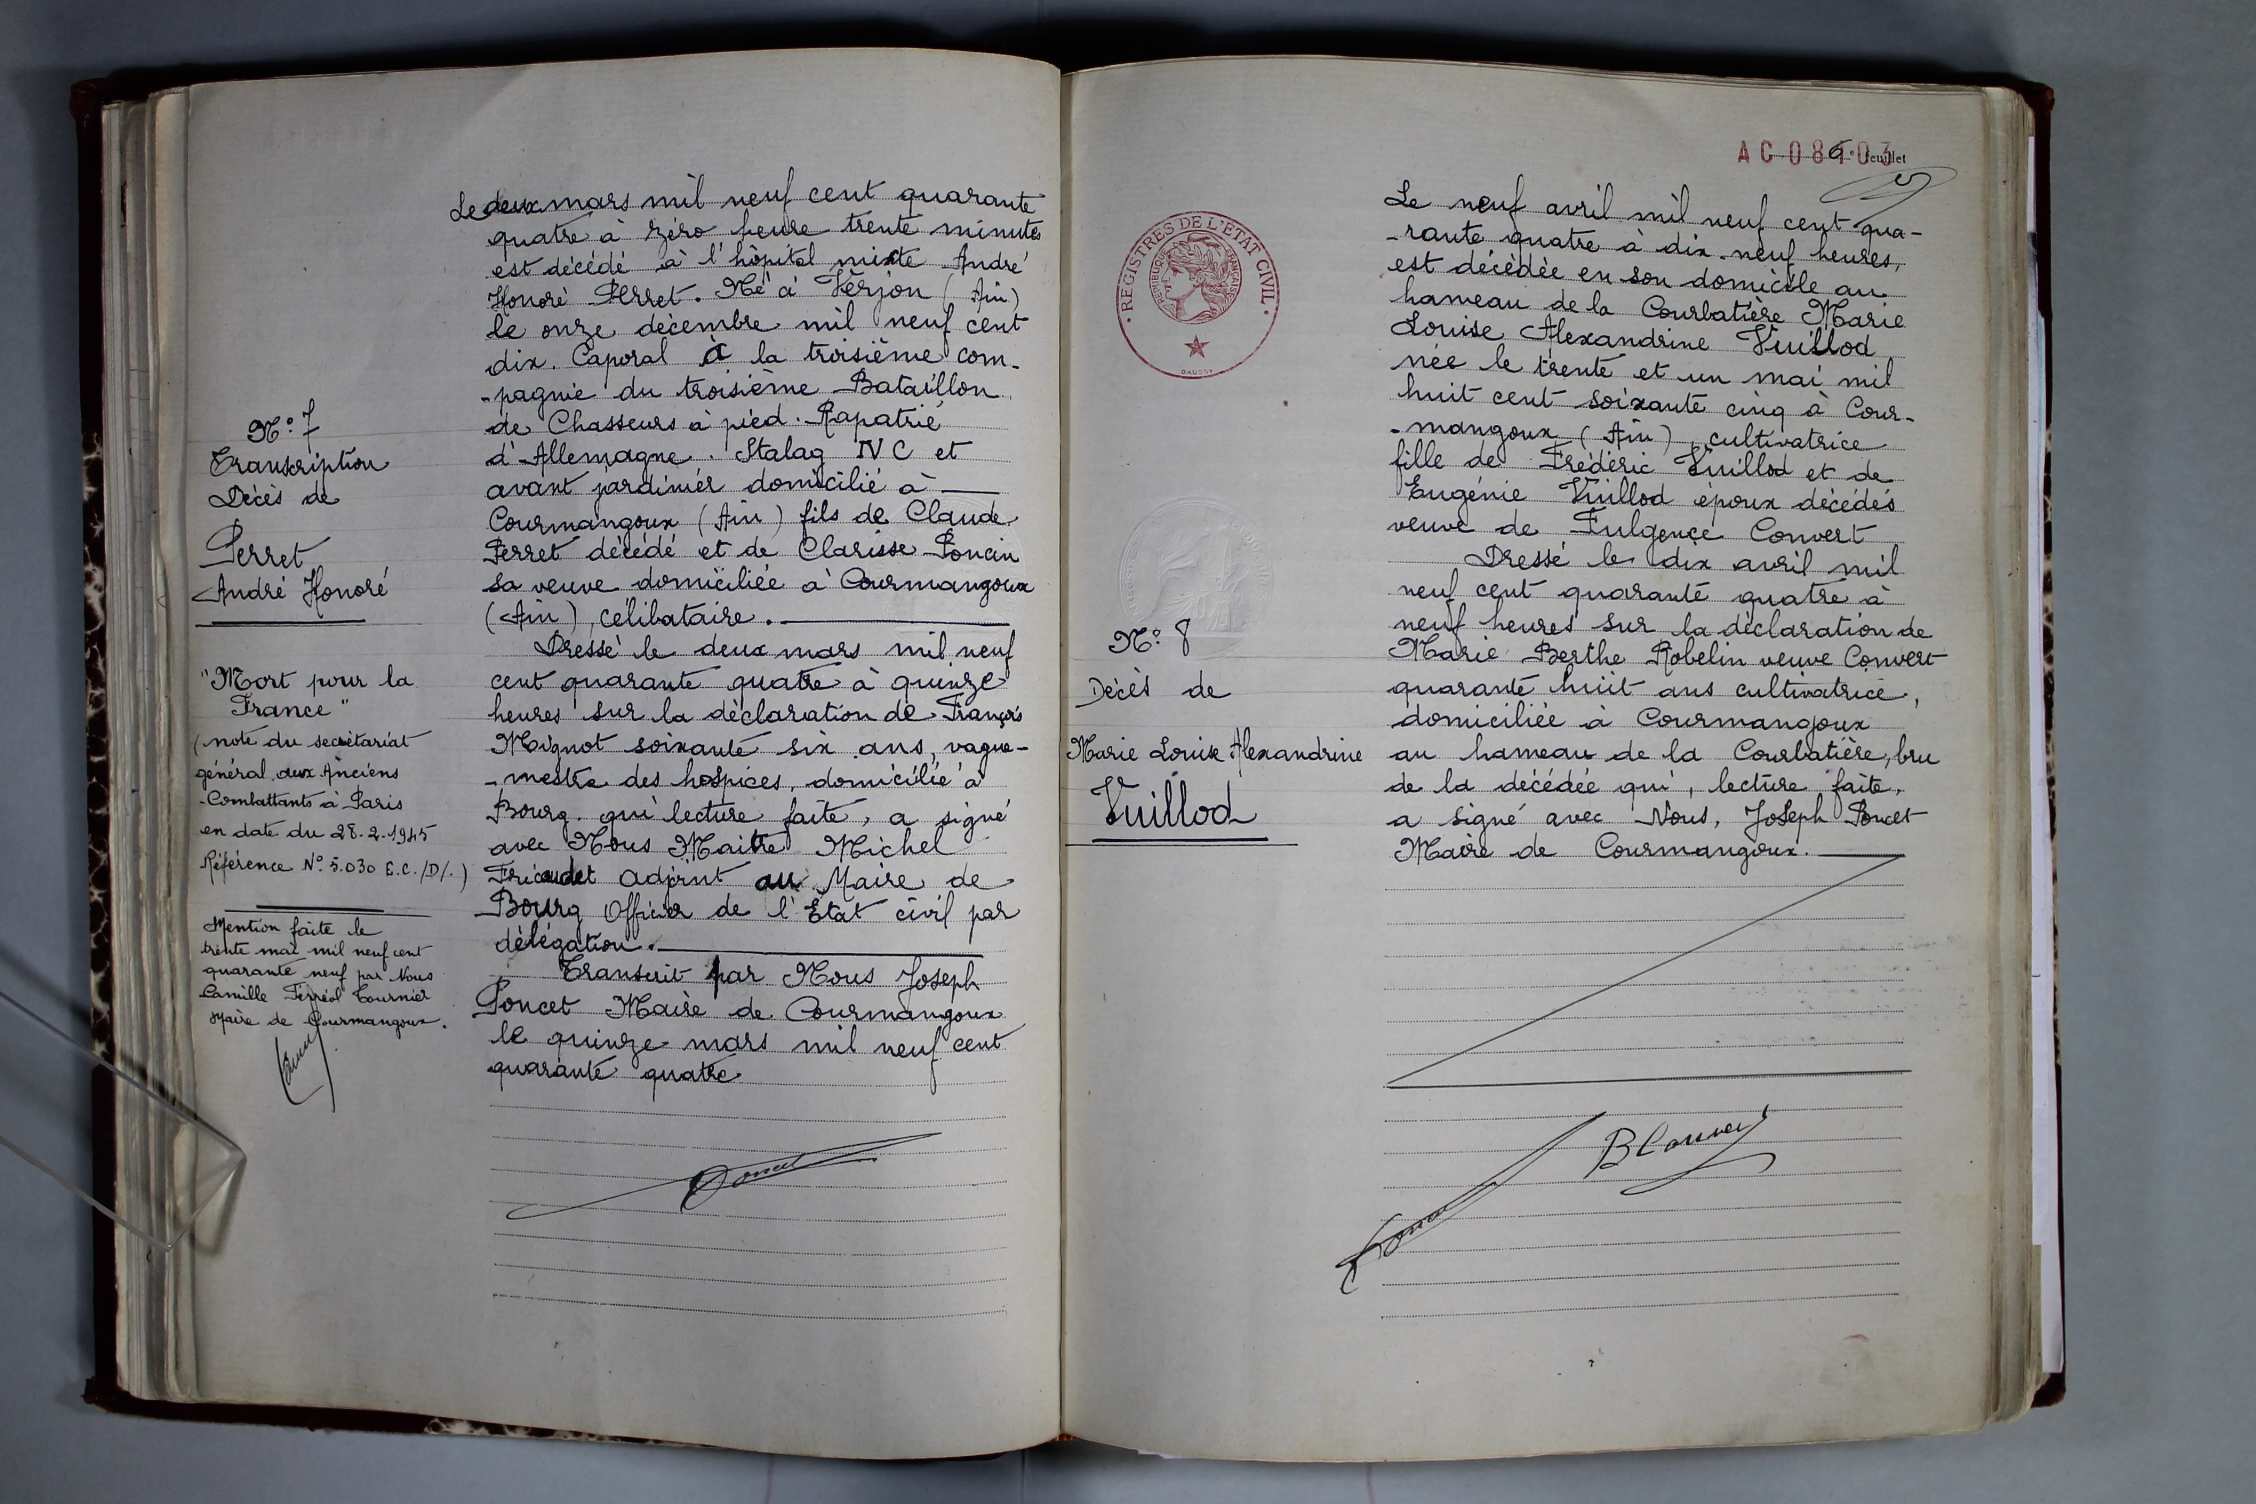 N° 7
Transkription
Décès de
Perret
André Honoré
"Mort pour la
France"
(note du secrétariat
général aux Anciens
Combattants à Paris
en date du 28.2.1945
Référence N° 5.030 E.C./D/.)
Mention faite le
trente mai mil neuf cent
quarante neuf par Nous
Camille Ferréol Tournier
Maire de Courmangoux.
Le deux mars mil neuf cent quarante
quatre à zéro heure trente minutes
est décédé à l'hôpital mixte André
Honoré Perret. Né à Verjon (Ain)
le onze décembre mil neuf cent
dix. Caporal à la troisième com-
-pagnie du troisième Bataillon
de Chasseurs à pied. Rapatrié
d'Allemagne. Stalag IV C et
avant jardinier domicilié à
Courmangoux (Ain) fils de Claude
Perret décédé et de Clarisse Poncin
sa veuve domiciliée à Courmangoux
(Ain), célibataire.
Dressé le deux mars mil neuf
cent quarante quatre à quinze
heures sur la déclaration de François
Mignot soixante six ans, vague-
-mestre des hospices, domicilié à
Bourg. qui lecture faite, a signé
avec Nous Maitre Michel
Fricaudet adjoint au Maire de
Bourg Officier de l'Etat civil par
délégation.
Transcrit par Nous Joseph
Poncet Maire de Courmangoux
le quinze mars mil neuf cent
quarante quatre
Poncet
AC 08 103
6e feuillet
REGISTRES DE L'ETAT CIVIL
REPUBLIQUE FRANCAISE
N° 8
Décès de
Marie Louise Alexandrine
Vuillod
Le neuf avril mil neuf cent qua-
-rante quatre à dix-neuf heures,
est décédée en son domicile au
hameau de la Courbatière Marie
Louise Alexandrine Vuillod
née le trente et un mai mil
huit cent soixante cinq à Cour-
-mangoux (Ain), cultivatrice
fille de Frédéric Vuillod et de
Eugénie Vuillod époux décédés
veuve de Fulgence Convert
Dressé le dix avril mil
neuf cent quarante quatre à
neuf heures sur la déclaration de
Marie Berthe Robelin veuve Convert
quarante huit ans cultivatrice,
domiciliée à Courmangoux
au hameau de la Courbatière, bru
de la décédée qui, lecture faite,
a signé avec Nous, Joseph Poncet
Maire de Courmangoux.
B Convert
Poncet